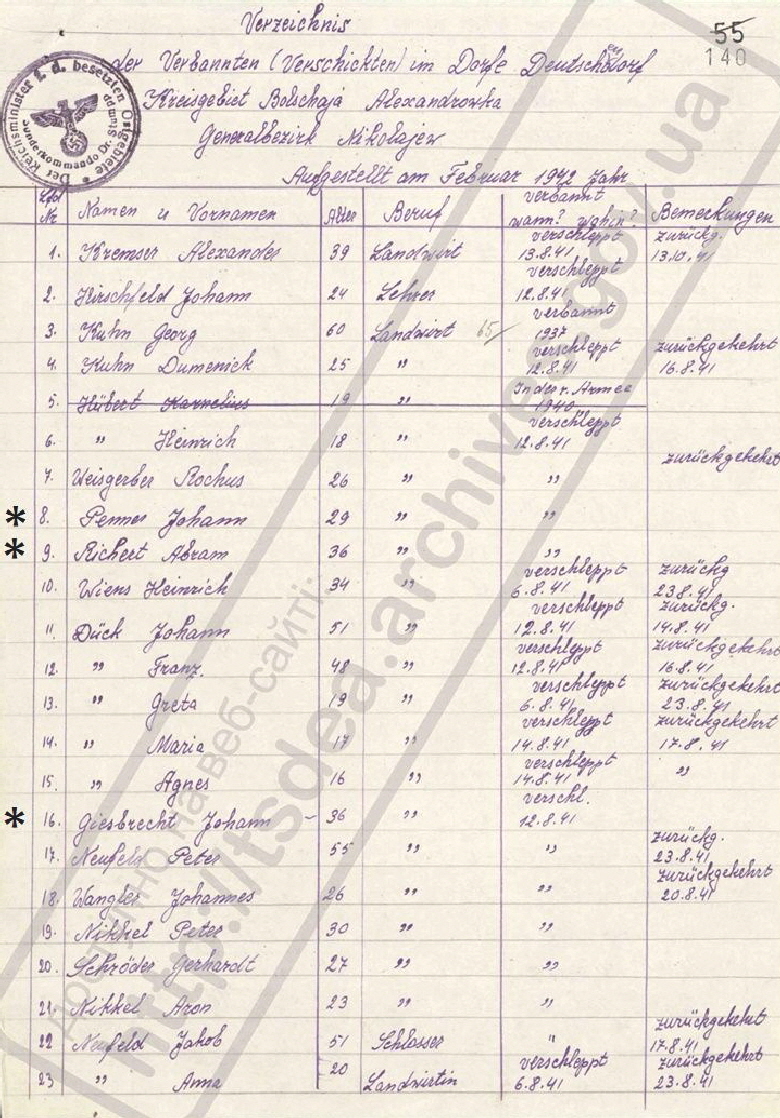 Verzeichnis
55
140
der Verbannten (Verschickten) im Dorfe Deutschendorf
Kreisgebiet Bolschaja Alexandrowka
Generalbezirk Nikolajew
Aufgestellt am Februar 1942 Jahr
Der Reichsminister f. d. besetzten Ostgebiete * Sonderkommando Dr. Stumpp
Lfd Nr Namen u Vornamen Alter Beruf verbannt wann? wohin? Bemerkungen
1. Kremser Alexander 39 Landwirt verschleppt 13.8.41 zurückg. 13.10.41
2. Hirschfeld Johann 24 Lehrer verschleppt 12.8.41
3. Kuhn Georg 60 Landwirt 65/ verbannt 1937
4. Kuhn Dumenick 25 " verschleppt 12.8.41 zurückgekehrt 16.8.41
5. Hübert Karnelius 19 " In der r. Armee 1940
6. " Heinrich 18 " verschleppt 12.8.41
7. Weisgerber Rochus 26 " " zurückgekehrt
* 8. Penner Johann 29 " "
* 9. Richert Abram 36 " "
10. Wiens Heinrich 34 " verschleppt 6.8.41 zurückg 23.8.41
11. Dück Johann 51 " verschleppt 12.8.41 zurückg. 14.8.41
12. " Franz. 48 " verschleppt 12.8.41 zurückgekehrt 16.8.41
13. " Greta 19 " verschleppt 6.8.41 zurückgekehrt 23.8.41
14. " Maria 17 " verschleppt 14.8.41 zurückgekehrt 17.8.41
15. " Agnes 16 " verschleppt 14.8.41 "
* 16. Giesbrecht Johann - 36 " verschl. 12.8.41
17. Neufeld Peter 55 " " zurückg. 23.8.41
18. Wangler Johannes 26 " " zurückgekehrt 20.8.41
19. Nikkel Peter 30 " "
20. Schröder Gerhardt 27 " "
21. Nikkel Aron 23 " "
22 Neufeld Jakob 51 Schlosser " zurückgekehrt 17.8.41
23 " Anna 20 Landwirtin verschleppt 6.8.41 zurückgekehrt 23.8.41
доступно на веб-сайті:
http://tsdea.archives.gov.ua